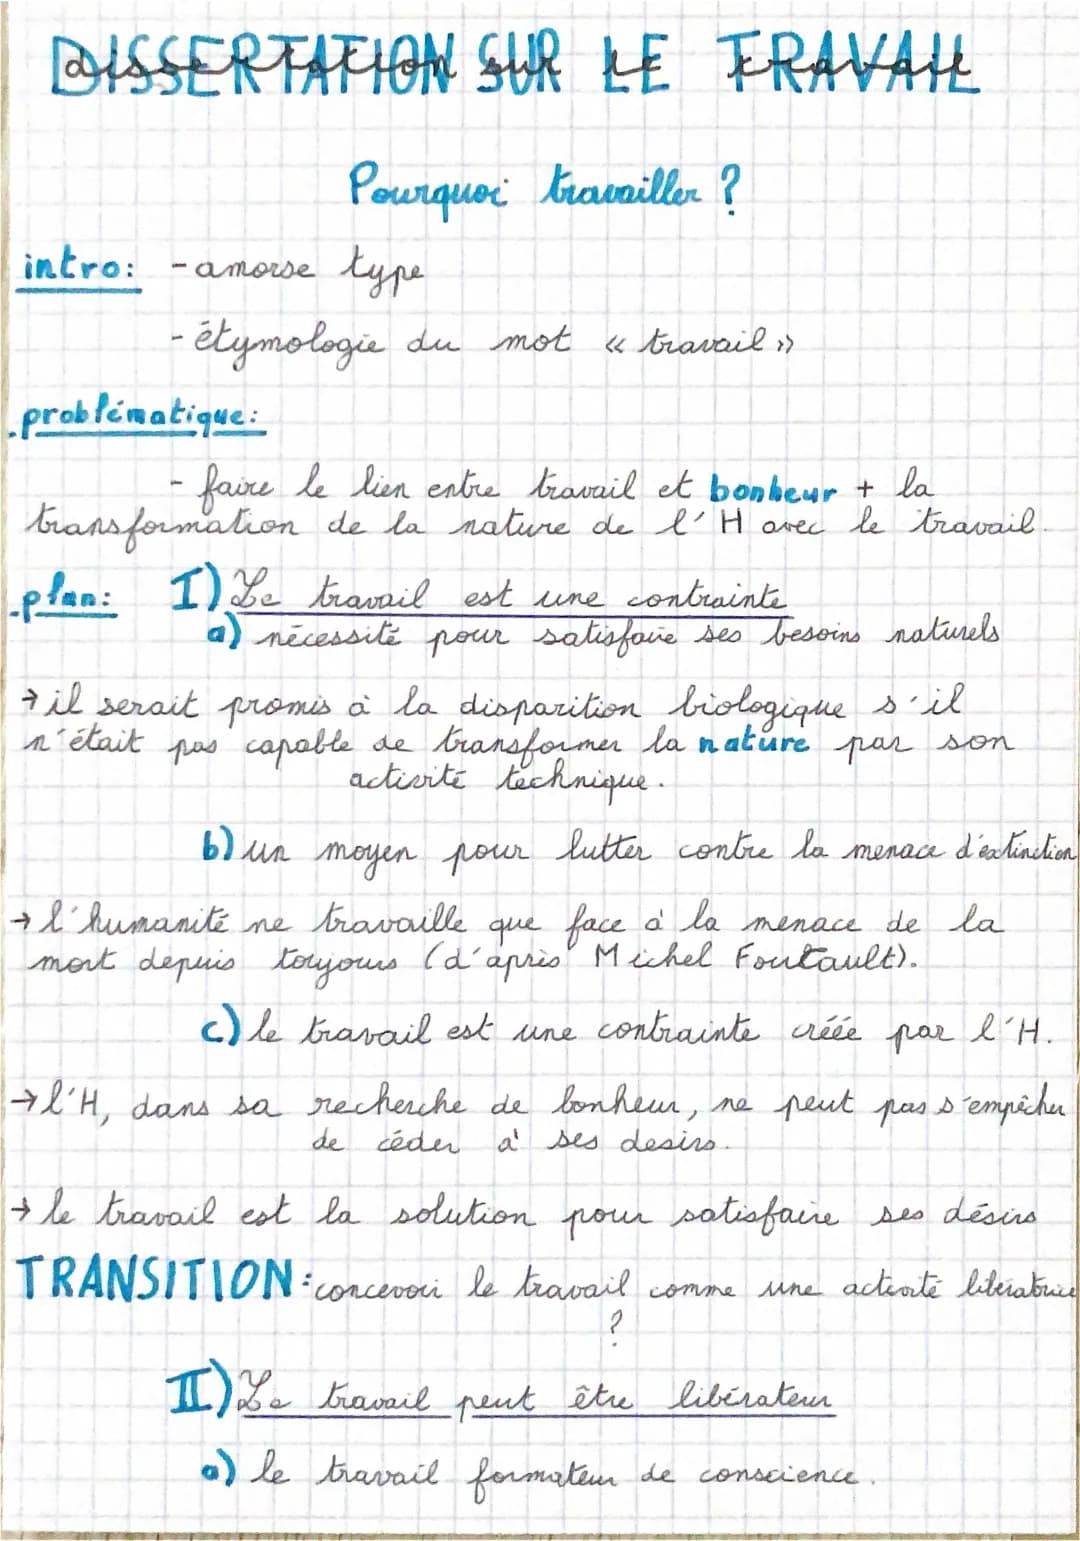 DISSERTATION SUR LE TRAVAIL
dissertation sur le travail
Pourquoi travailler ?
intro: - amorse type
- étymologie du mot « travail »
problématique:
- faire le lien entre travail et bonheur + la
transformation de la nature de l'H avec le travail.
plan: I) Le travail est une contrainte
a) nécessité pour satisfaire ses besoins naturels
→ il serait promis à la disparition biologique s'il
n'était pas capable de transformer la nature par son
activité technique.
b) un moyen pour lutter contre la menace d'extinction
→ l'humanité ne travaille que face à la menace de la
mort depuis toujours (d'après Michel Foutault).
c) le travail est une contrainte créée par l'H.
→ l'H, dans sa recherche de bonheur, ne peut pas s'empêcher
de céder à ses desirs.
→ le travail est la solution pour satisfaire ses désirs
TRANSITION: concevoir le travail comme une activité libératrice
?
II) Le travail peut être libérateur
a) le travail formateur de conscience.